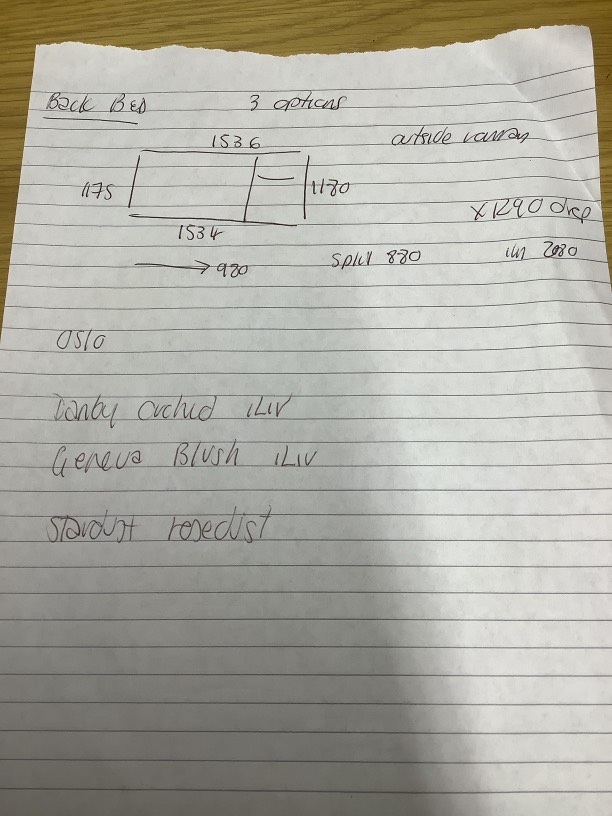 Back Bed 3 options
1536 outside
1175 1180
x 1290 drop
1534
980 split 880 2080
Oslo
Danby orchid iLiv
Geneva Blush iLiv
Stardust rosedist